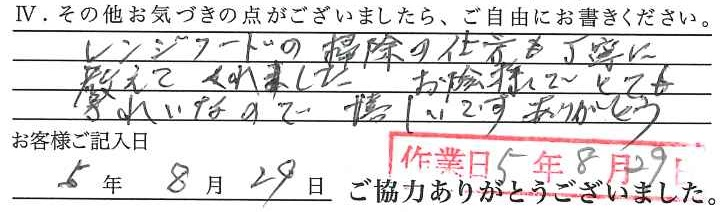 Ⅳ．その他お気づきの点がございましたら、ご自由にお書きください。
レンジフードの掃除の仕方も丁寧に
教えてくれました お陰様でとても
きれいなので嬉しいです ありがとう
お客様ご記入日
5年 8月 29日
作業日 5年 8月 29日
ご協力ありがとうございました。